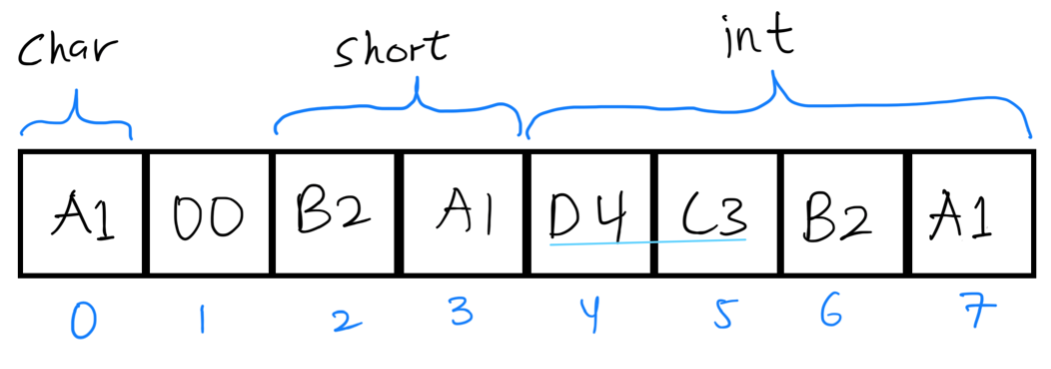 Char short int
A1 00 B2 A1 D4 C3 B2 A1
0 1 2 3 4 5 6 7